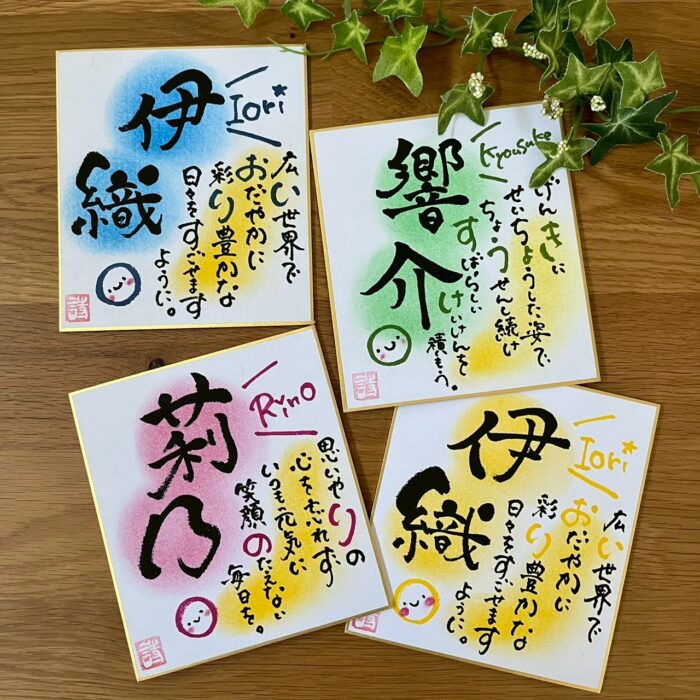 伊織
Iori
広い世界で
おだやかに
彩り豊かな
日々をすごせます
ように。
詩
響介
Kyousuke
げんきに
せいちょうした姿で
ちょうせんし続け
すばらしい
けいけんを
積もう。
詩
莉乃
Rino
思いやりの
心を忘れず
いつも元気に
笑顔のたえない
毎日を。
詩
伊織
Iori
広い世界で
おだやかに
彩り豊かな
日々をすごせます
ように。
詩